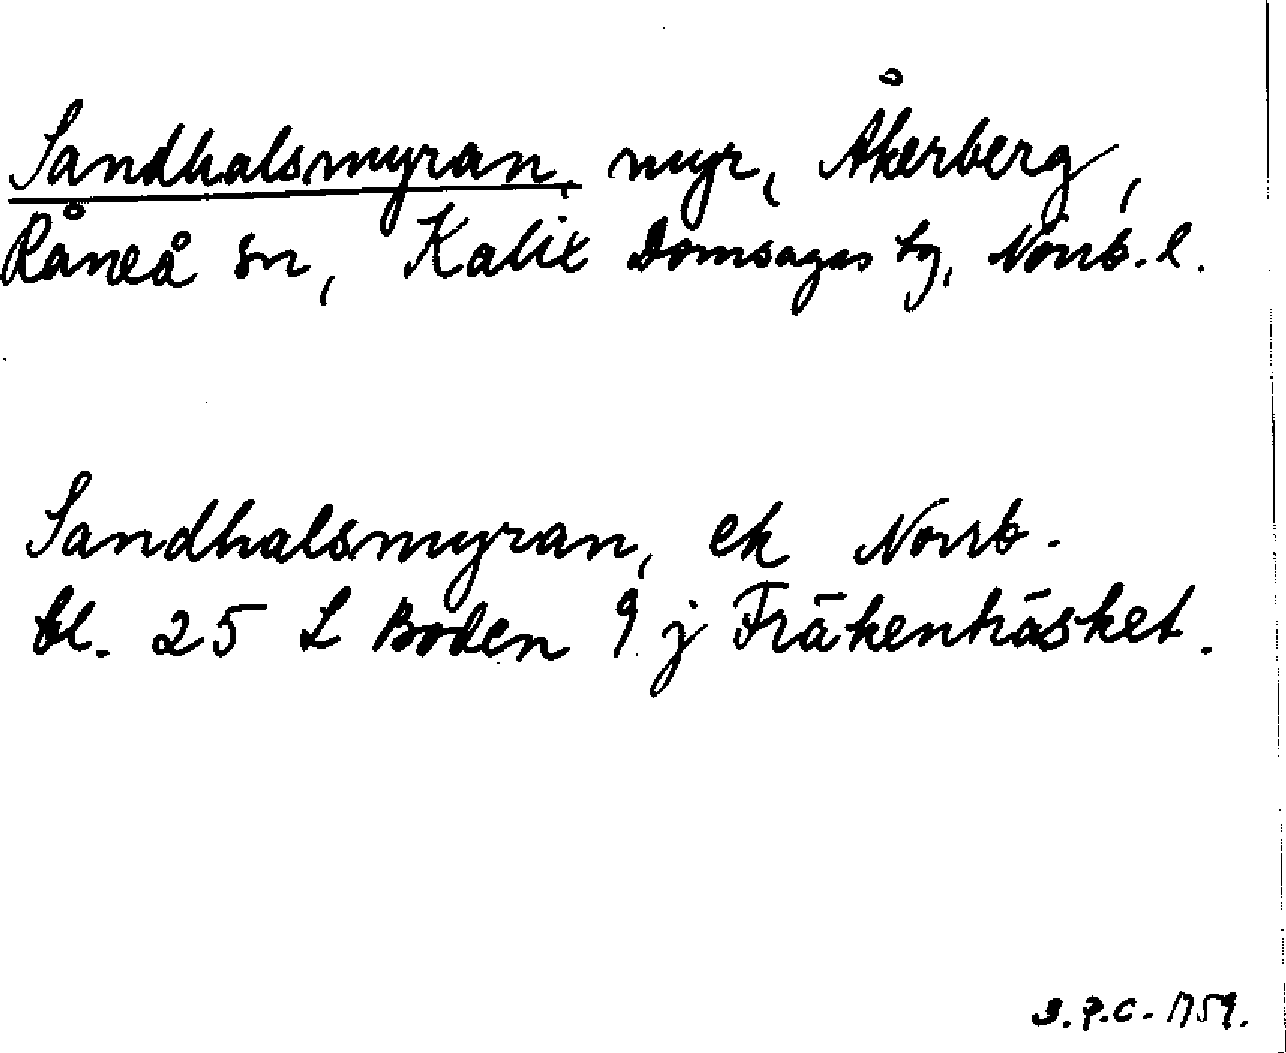 Sandhalsmyran, myr, Åkerberg,
Råneå sn, Kalix Domsagas tg, Norrb. l.
Sandhalsmyran, ek Norrb.
bl. 25 L Boden 9 j Fräkenträsket.
S.P.C. 1959.